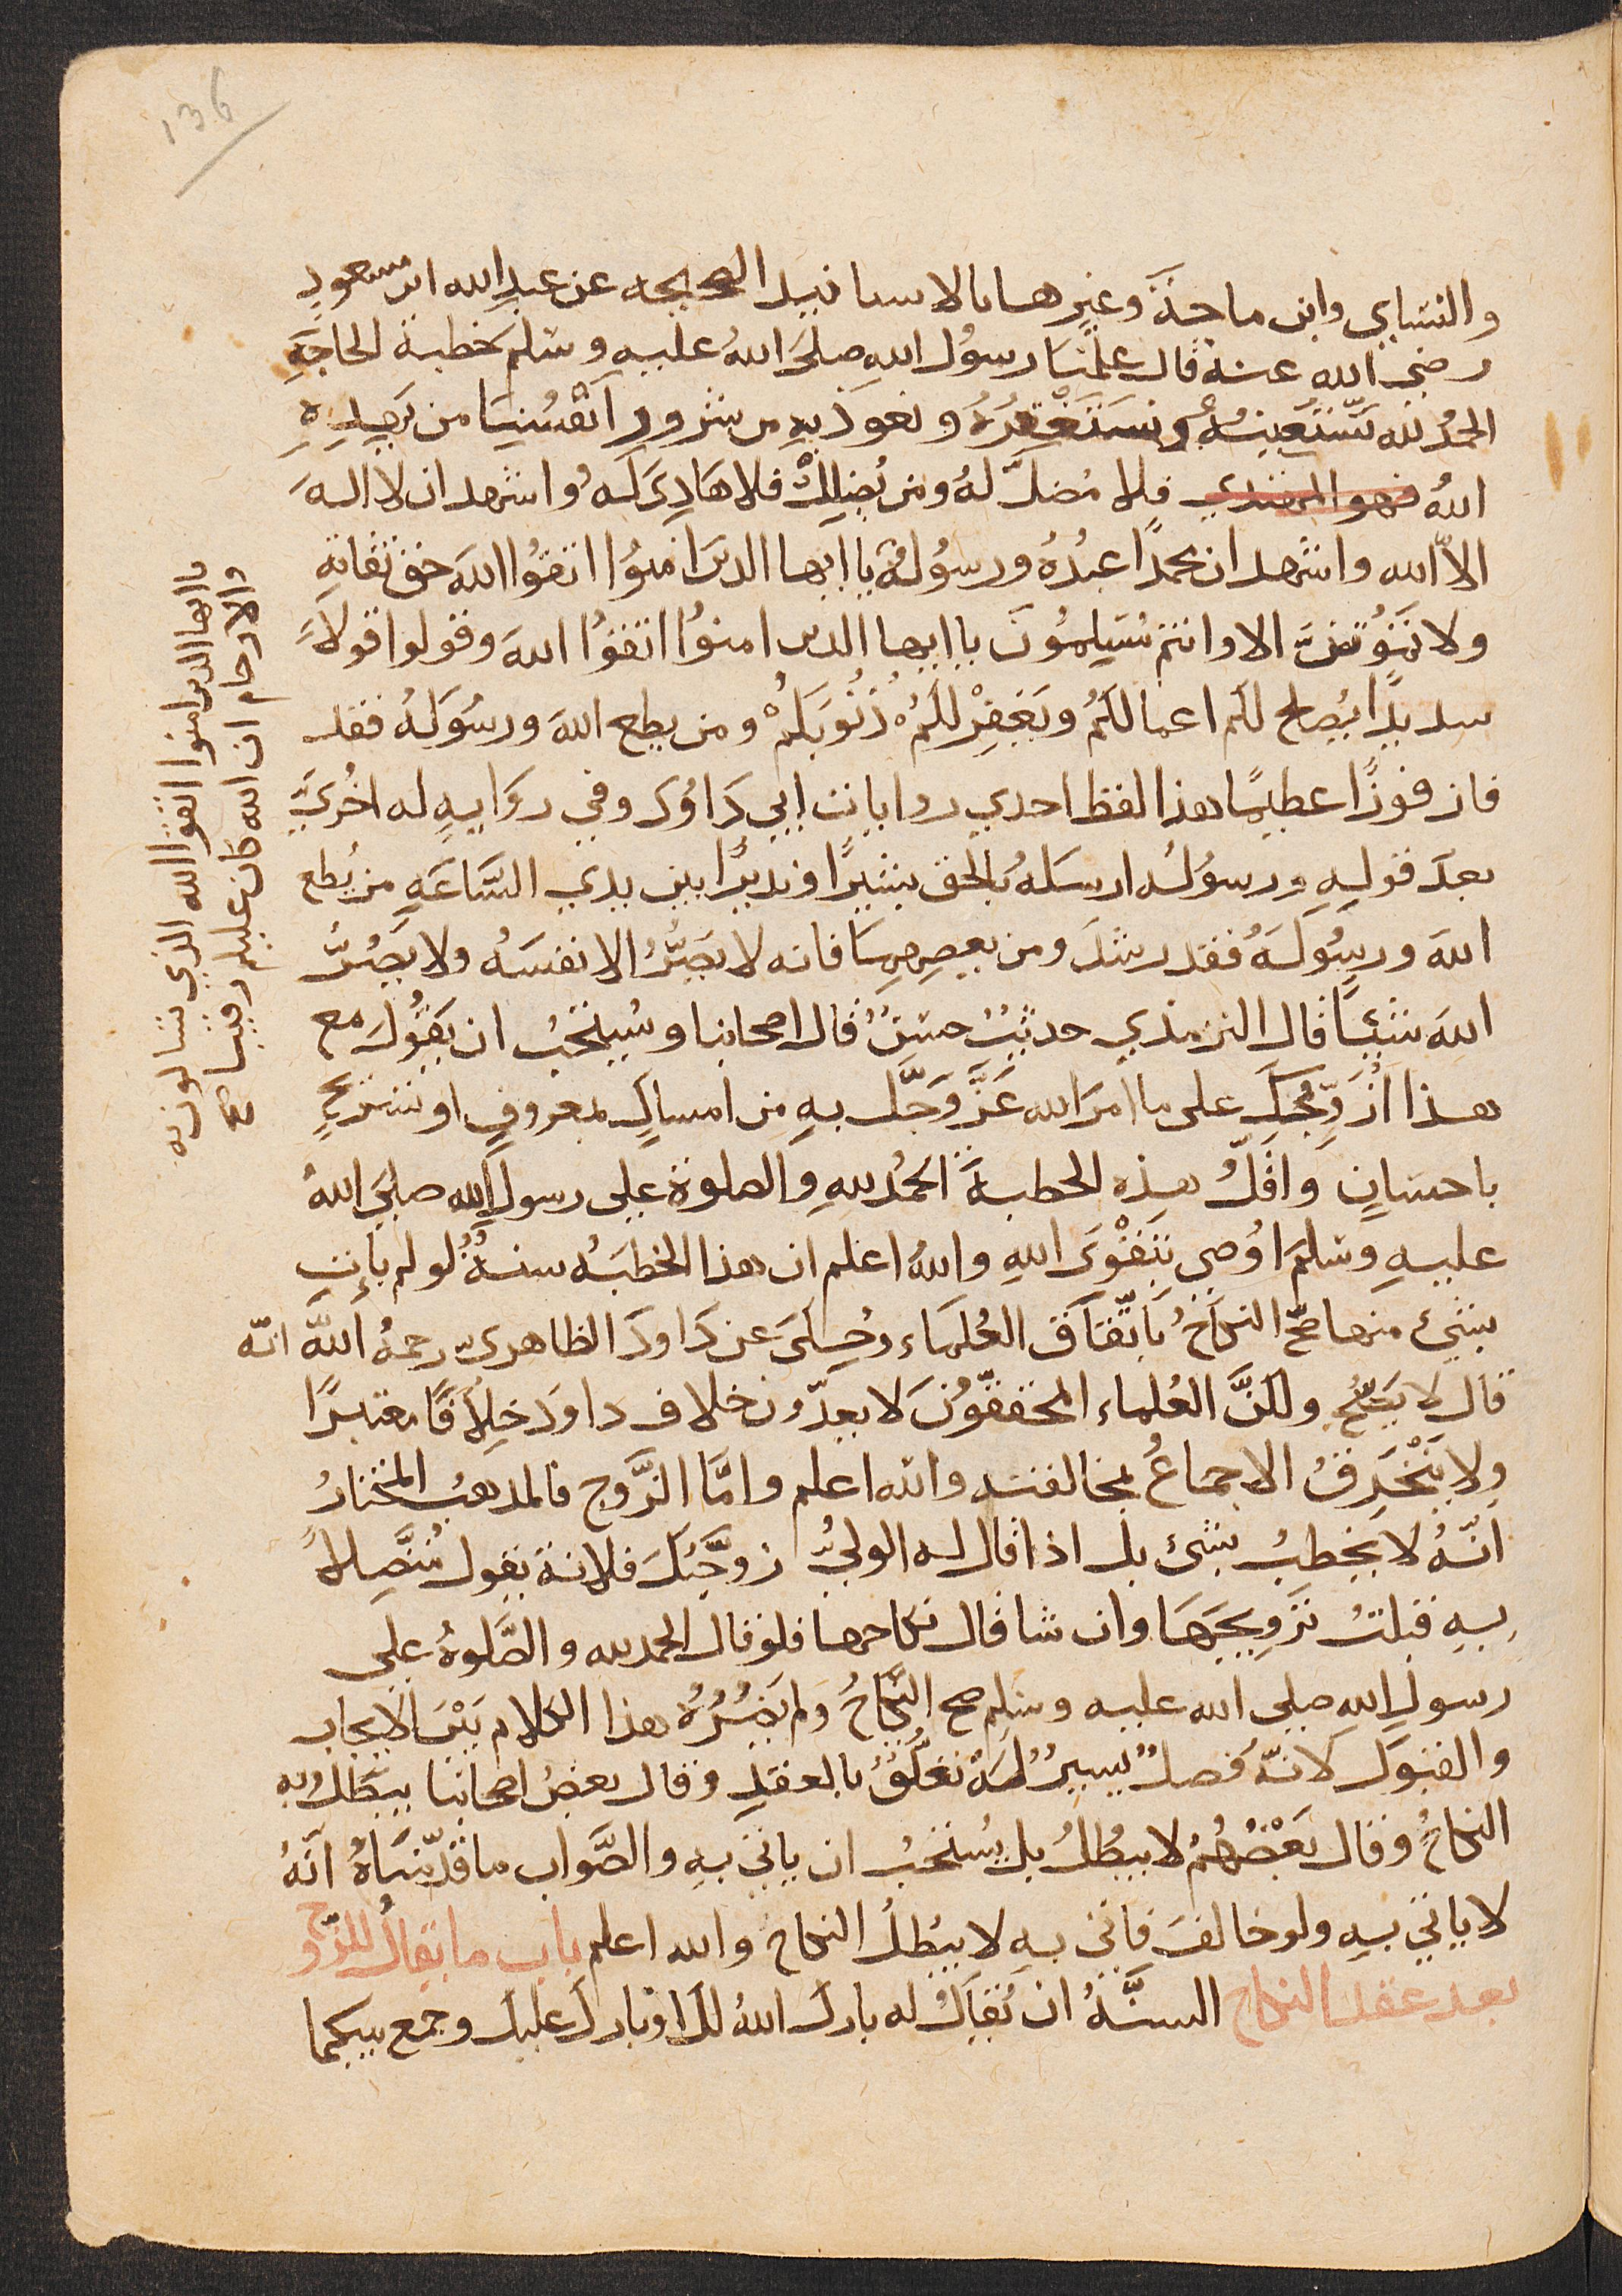 136
والنسايي وابن ماجة وغيرها بالاسانيد الصحيحه عن عبد الله ابن مسعود
رضي الله عنه قال علمنا رسول الله صلى الله عليه وسلم خطبة الحاجة
الحمد لله نستعينه ونستغفره ونعوذ به من شرور انفسنا من يهده
الله فهو المهتدي فلا مضل له ومن يضلل فلا هادي له واشهد ان لا اله
الا الله واشهد ان محمدا عبده ورسوله يا ايها الذين امنوا اتقوا الله حق تقاته
ولا تموتن الا وانتم مسلمون يا ايها الذين امنوا اتقوا الله وقولوا قولا
سديدا يصلح لكم اعمالكم ويغفر لكم ذنوبكم ومن يطع الله ورسوله فقد
فاز فوزا عظيما هذا لفظ احدي روايات ابي داود وفي رواية له اخرى
بعد قوله ورسوله ارسله بالحق بشيرا ونذيرا بين يدي الساعة من يطع
الله ورسوله فقد رشد ومن يعصهما فانه لا يضر الا نفسه ولا يضر
الله شيئا قال الترمذي حديث حسن قال اصحابنا ويستحب ان يقول مع
هذا ازوجك على ما امر الله عز وجل به من امساك بمعروف او تسريح
باحسان واقل هذه الخطبة الحمد لله والصلوة على رسول الله صلى الله
عليه وسلم اوصي بتقوى الله والله اعلم ان هذا الخطبه سنة لو لم يات
بشئ منها صح النكاح باتفاق العلماء وحكى عن داود الظاهرى رحمه الله انه
قال لا يصح ولكن العلماء المحققون لا يعدون خلاف داود خلافا معتبرا
ولا ينخرق الاجماع بمخالفته والله اعلم واما الزوج فالمذهب المختار
انه لا يخطب بشئ بل اذا قال له الولي زوجتك فلانة يقول متصلا
به قبلت تزويجها وان شا قال نكاحها فلو قال الحمد لله والصلوة على
رسول الله صلى الله عليه وسلم صح النكاح ولم يضرره هذا الكلام بين الايجاب
والقبول لانه فصل يسير له تعلق بالعقد وقال بعض اصحابنا يبطل به
النكاح وقال بعضهم لا يبطل بل يستحب ان ياتي به والصواب ما قدمناه انه
لا ياتي به ولو خالف فاتى به لا يبطل النكاح والله اعلم باب ما يقال للزوج
بعد عقد النكاح السنة ان يقال له بارك الله لك او بارك عليك وجمع بينكما
يا ايها الذين امنوا اتقوا الله الذي تسالون به
والارحام ان الله كان عليكم رقيبا